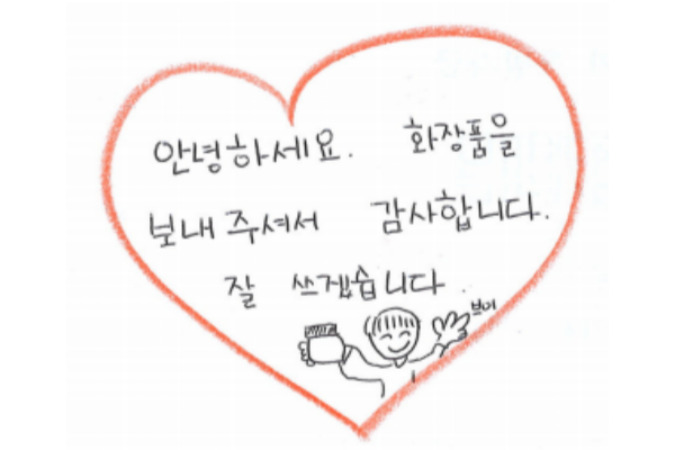 안녕하세요. 화장품을
보내 주셔서 감사합니다.
잘 쓰겠습니다.
브이